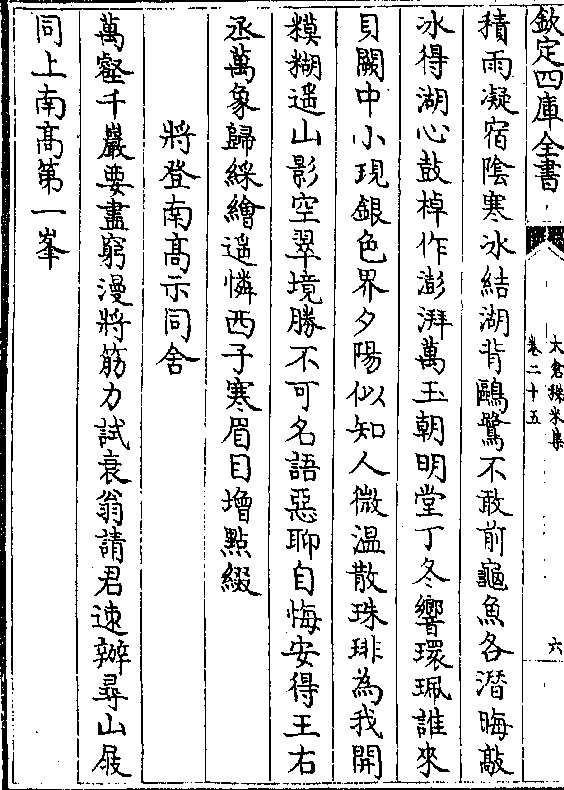 欽定四庫全書
太倉稊米集
卷二十五
六
積雨凝宿陰寒冰結湖背鷗鷺不敢前龜魚各潛晦敲
冰得湖心鼓棹作澎湃萬玉朝明堂丁冬響環珮誰來
貝闕中小現銀色界夕陽似知人微溫散珠琲為我開
糢糊遥山影空翠境勝不可名語惡聊自悔安得王右
丞萬象歸綵繪遥憐西子寒眉目增點綴
將登南髙示同舍
萬壑千巖要盡窮漫將筋力試衰翁請君速辦尋山屐
同上南髙第一峯